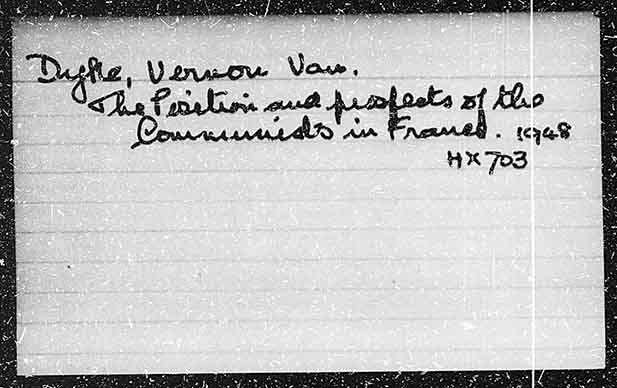 Dyke, Vernon Van.
The Position and prospects of the
Communists in France. 1948
HX 703